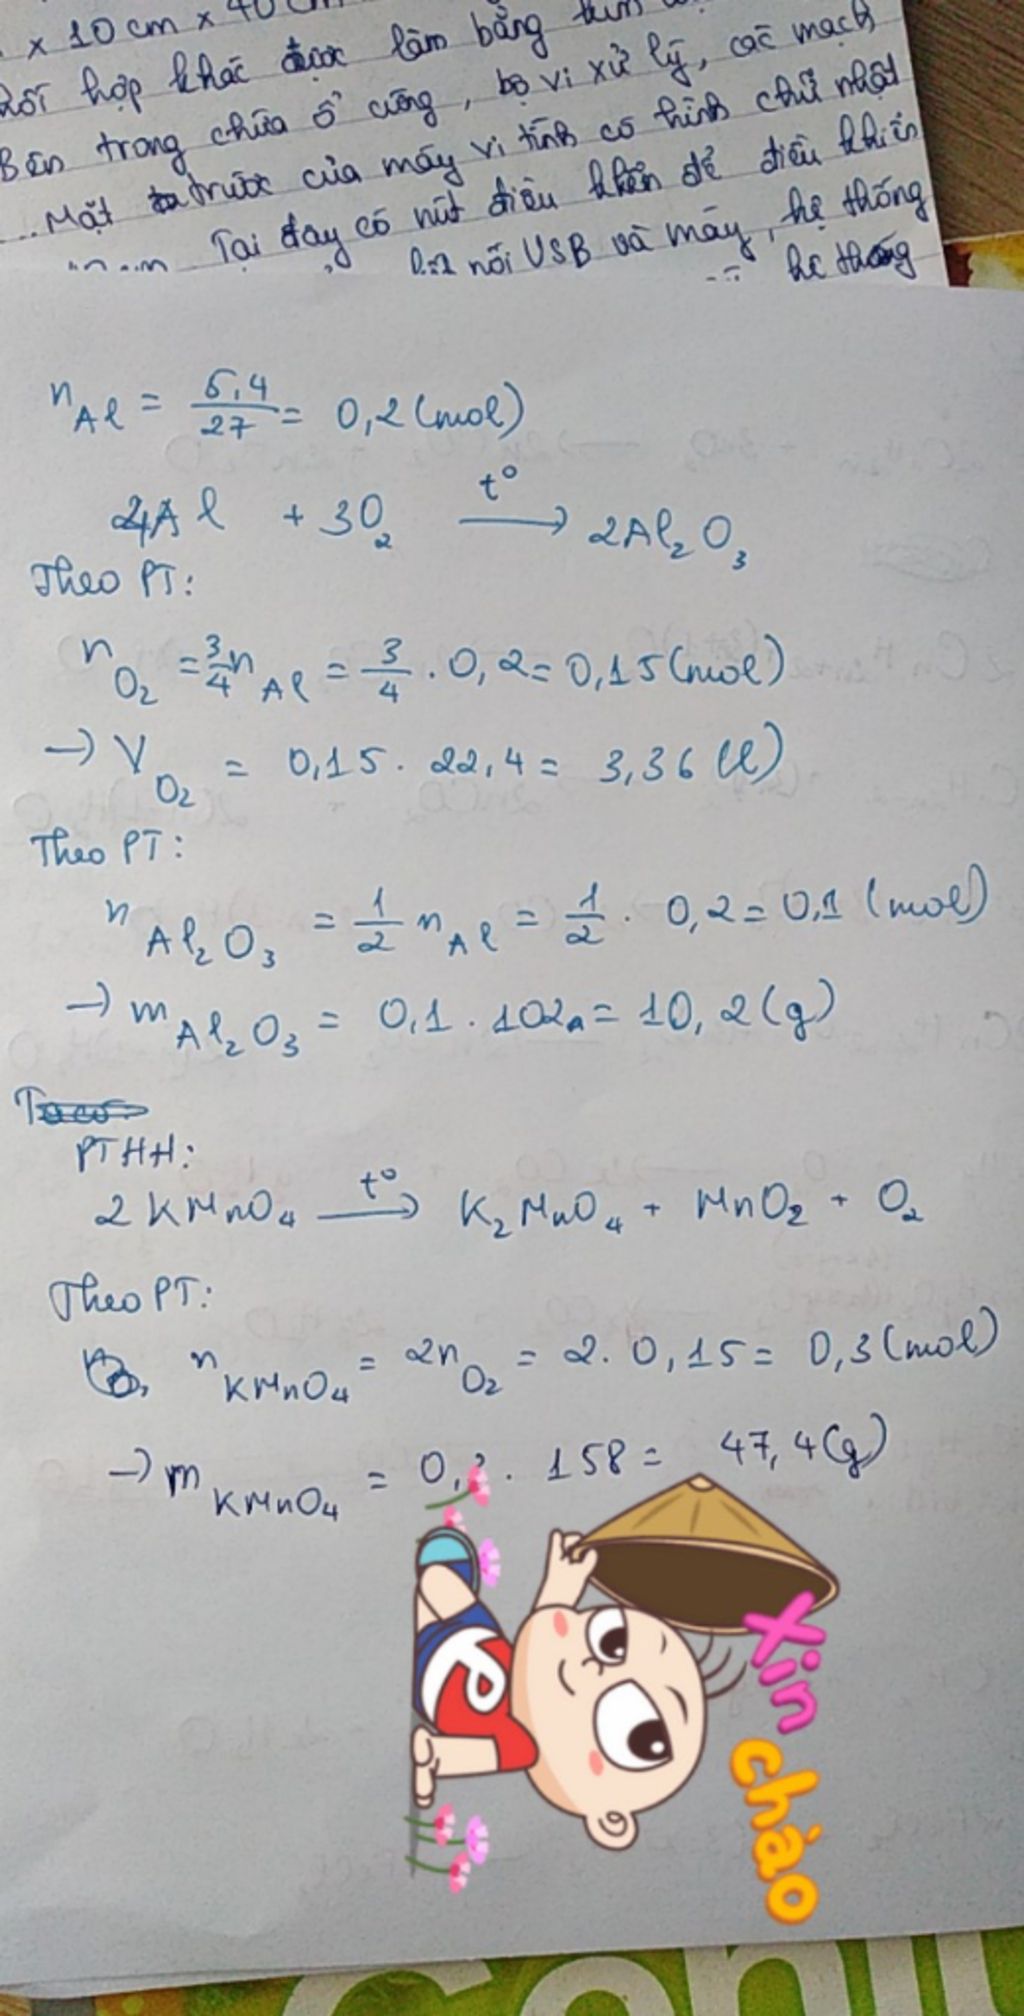 x 10 cm x 40 cm
hợp khác được làm bằng
Bên trong chứa ổ cứng, bộ vi xử lý, các mạch
... Mặt trước của máy vi tính có hình chữ nhật
Tại đay có nút điều khiển để điều khiển
nối USB và máy, hệ thống
hệ thống
n Al = 5,4/27 = 0,2 (mol)
4Al + 3O₂ —t°→ 2Al₂O₃
Theo PT:
n O₂ = 3/4 n Al = 3/4 . 0,2 = 0,15 (mol)
→ V O₂ = 0,15 . 22,4 = 3,36 (l)
Theo PT:
n Al₂O₃ = 1/2 n Al = 1/2 . 0,2 = 0,1 (mol)
→ m Al₂O₃ = 0,1 . 102 = 10,2 (g)
PTHH:
2 KMnO₄ —t°→ K₂MnO₄ + MnO₂ + O₂
Theo PT:
n KMnO₄ = 2n O₂ = 2. 0,15 = 0,3 (mol)
→ m KMnO₄ = 0,3 . 158 = 47,4 (g)
Xin
chào